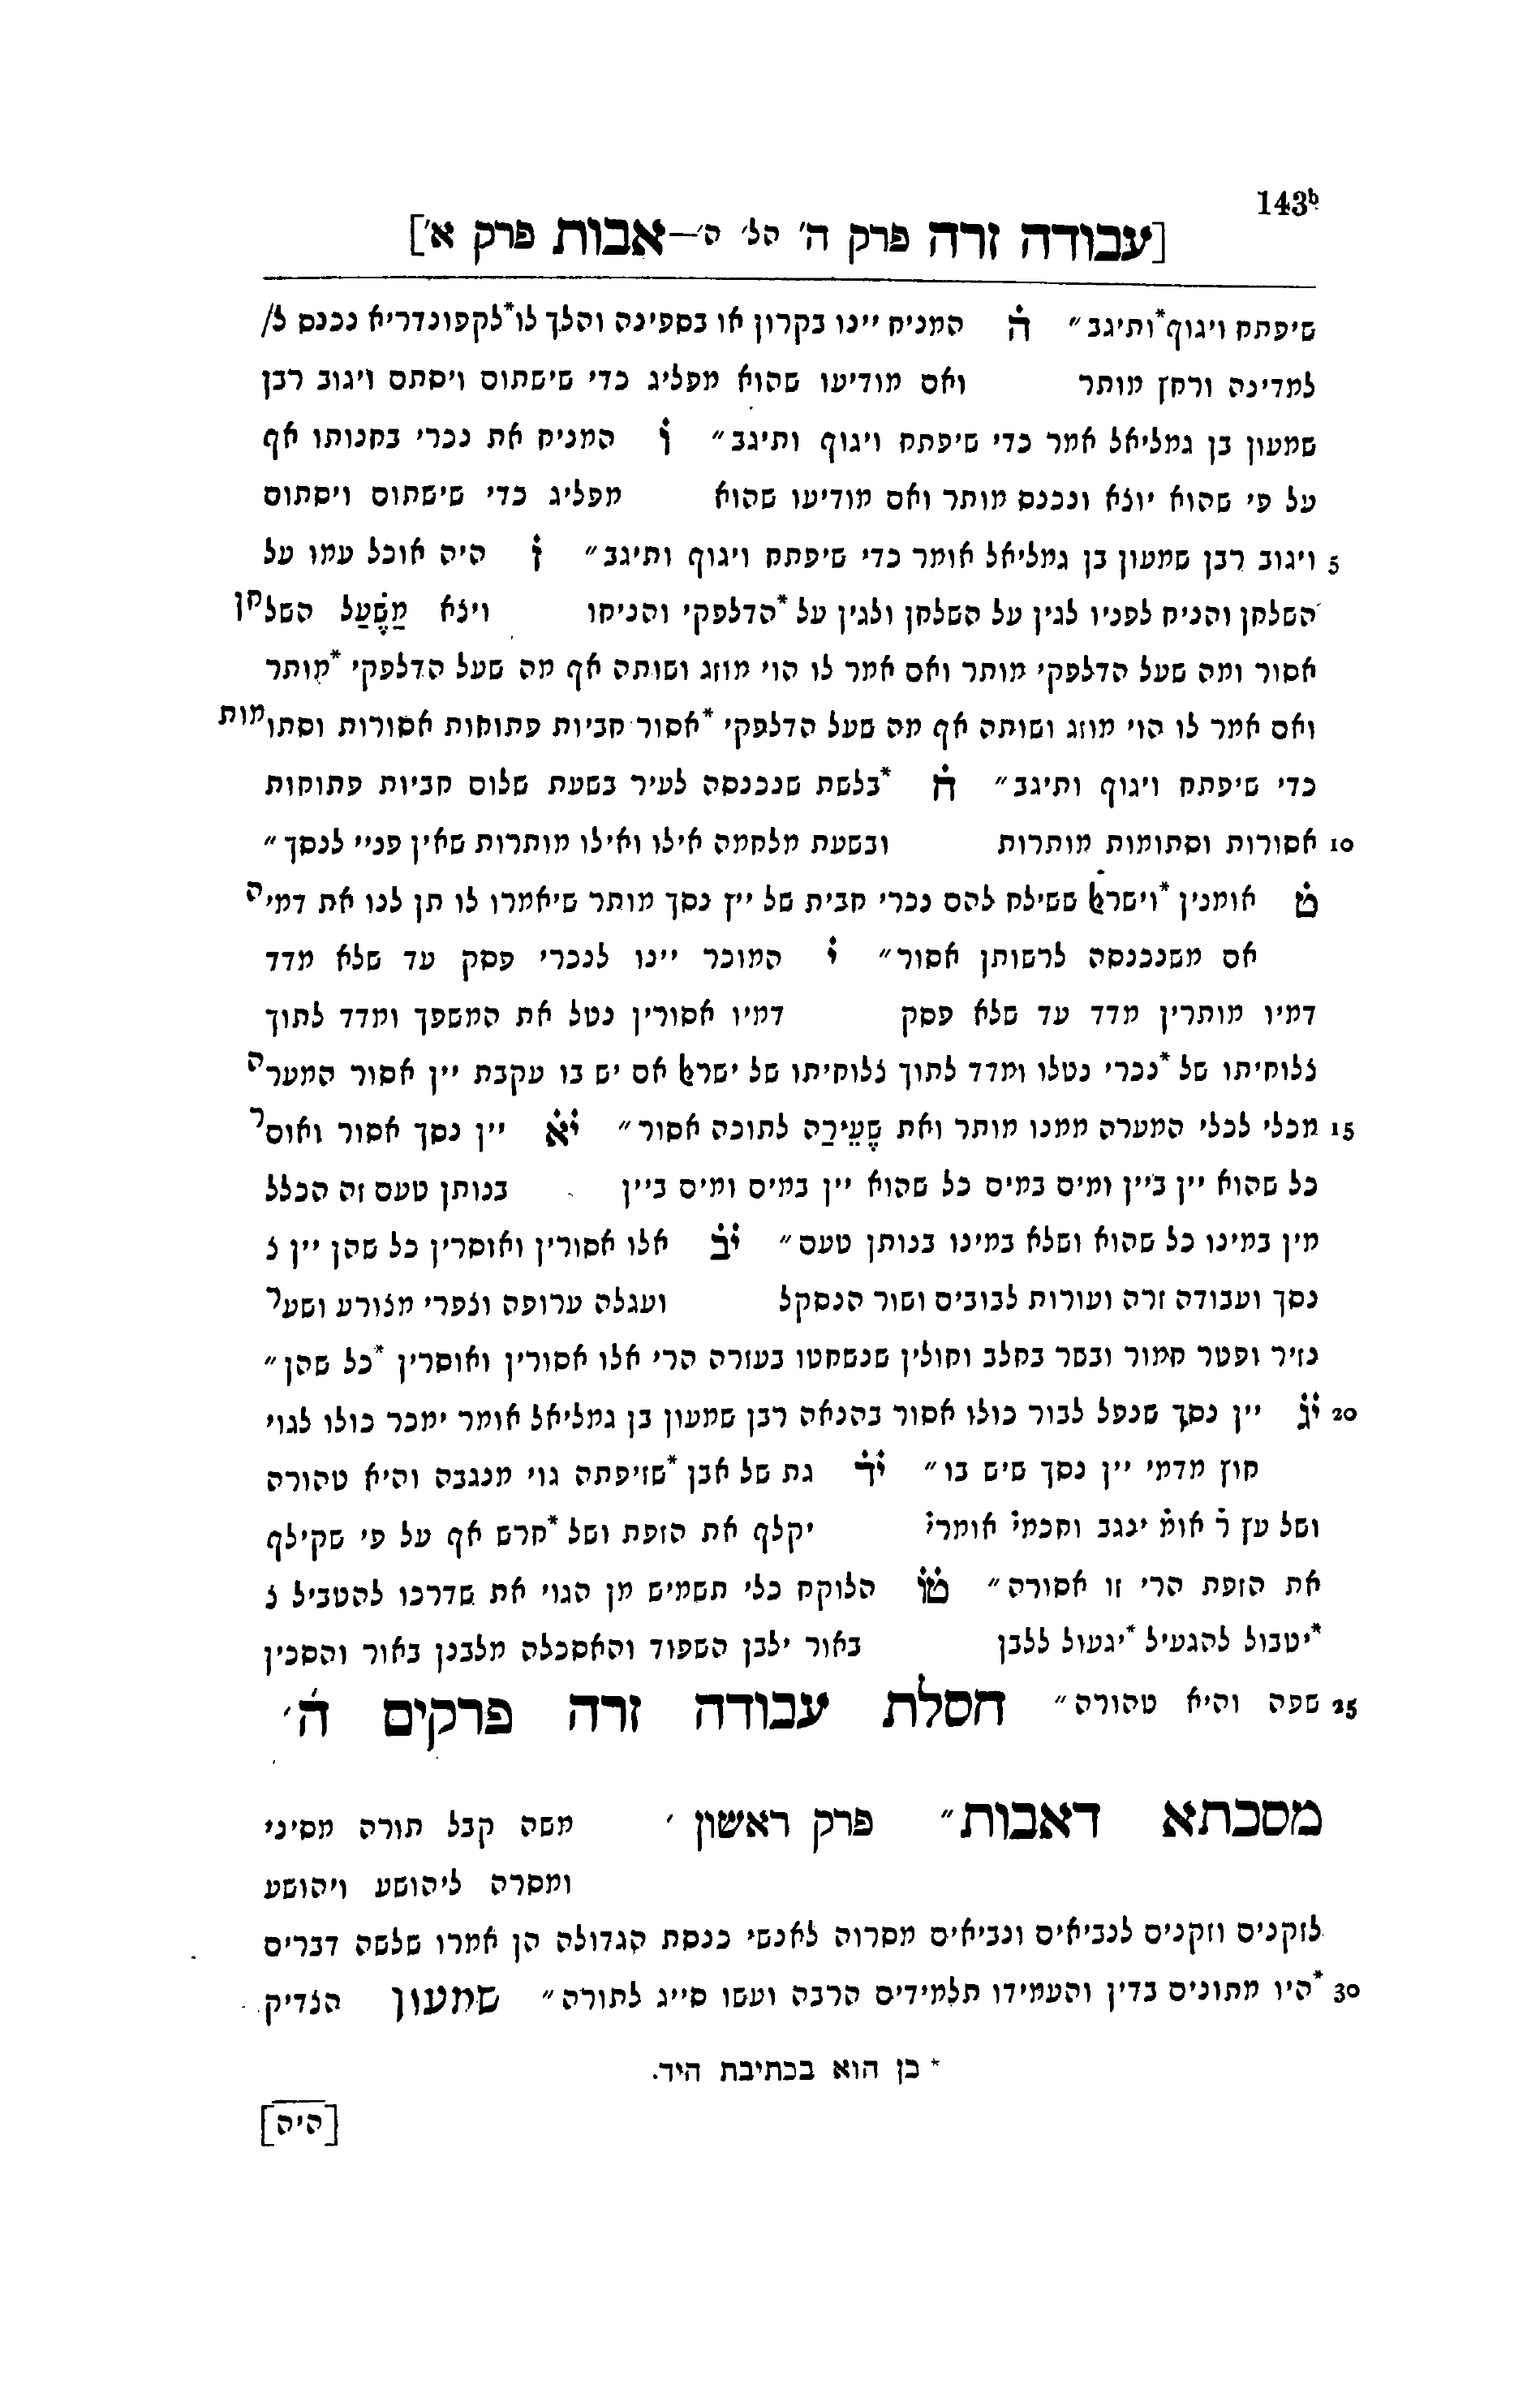 143b
[עבודה זרה פרק ה' הל' ה'—אבות פרק א']
שיפתח ויגוף *ותיגב״ ה המניח יינו בקרון או בספינה והלך לו *לקפונדריא נכנס ל/
למדינה ורחץ מותר ואם מודיעו שהוא מפליג כדי שישתום ויסתם ויגוב רבן
שמעון בן גמליאל אמר כדי שיפתח ויגוף ותיגב״ ו המניח את נכרי בחנותו אף
על פי שהוא יוצא ונכנס מותר ואם מודיעו שהוא מפליג כדי שישתום ויסתום
5 ויגוב רבן שמעון בן גמליאל אומר כדי שיפתח ויגוף ותיגב״ ז היה אוכל עמו על
השלחן והניח לפניו לגין על השלחן ולגין על *הדלפקי והניחו ויצא מַשֶּׁעַל השלחן
אסור ומה שעל הדלפקי מותר ואם אמר לו הוי מוזג ושותה אף מה שעל הדלפקי *מותר
ואם אמר לו הוי מוזג ושותה אף מה שעל הדלפקי *אסור חביות פתוחות אסורות וסתומות
כדי שיפתח ויגוף ותיגב״ ח *בלשת שנכנסה לעיר בשעת שלום חביות פתוחות
10 אסורות וסתומות מותרות ובשעת מלחמה אילו ואילו מותרות שאין פניי לנסך״
ט אומנין *וישרﭏ ששילח להם נכרי חבית של יין נסך מותר שיאמרו לו תן לנו את דמיה
אם משנכנסה לרשותן אסור״ י המוכר יינו לנכרי פסק עד שלא מדד
דמיו מותרין מדד עד שלא פסק דמיו אסורין נטל את המשפך ומדד לתוך
צלוחיתו של *נכרי נטלו ומדד לתוך צלוחיתו של ישרﭏ אם יש בו עקבת יין אסור המערה
15 מכלי לכלי המערה ממנו מותר ואת שֶעֵירַה לתוכה אסור״ יא יין נסך אסור ואוסר
כל שהוא יין ביין ומים במים כל שהוא יין במים ומים ביין בנותן טעם זה הכלל
מין במינו כל שהוא ושלא במינו בנותן טעם״ יב אלו אסורין ואוסרין כל שהן יין נ
נסך ועבודה זרה ועורות לבובים ושור הנסקל ועגלה ערופה וצפרי מצורע ושער
נזיר ופטר חמור ובשר בחלב וחולין שנשחטו בעזרה הרי אלו אסורין ואוסרין *כל שהן״
20 יג יין נסך שנפל לבור כולו אסור בהנאה רבן שמעון בן גמליאל אומר ימכר כולו לגוי
חוץ מדמי יין נסך שיש בו״ יד גת של אבן *שזיפתה גוי מנגבה והיא טהורה
ושל עץ ר֗ אומ֗ ינגב וחכמי֗ אומרי֗ יקלף את הזפת ושל *חרש אף על פי שקילף
את הזפת הרי זו אסורה״ טו הלוקח כלי תשמיש מן הגוי את שדרכו להטביל נ
*יטבול להגעיל *יגעול ללבן באור ילבן השפוד והאסכלה מלבנן באור והסכין
25 שפה והיא טהורה״ חסלת עבודה זרה פרקים ה'
מסכתא דאבות״ פרק ראשון ' משה קבל תורה מסיני
ומסרה ליהושע ויהושע
לזקנים וזקנים לנביאים ונביאים מסרוה לאנשי כנסת הגדולה הן אמרו שלשה דברים
30 *היו מתונים בדין והעמידו תלמידים הרבה ועשו סייג לתורה״ שמעון הצדיק
* כן הוא בכתיבת היד.
[היה]